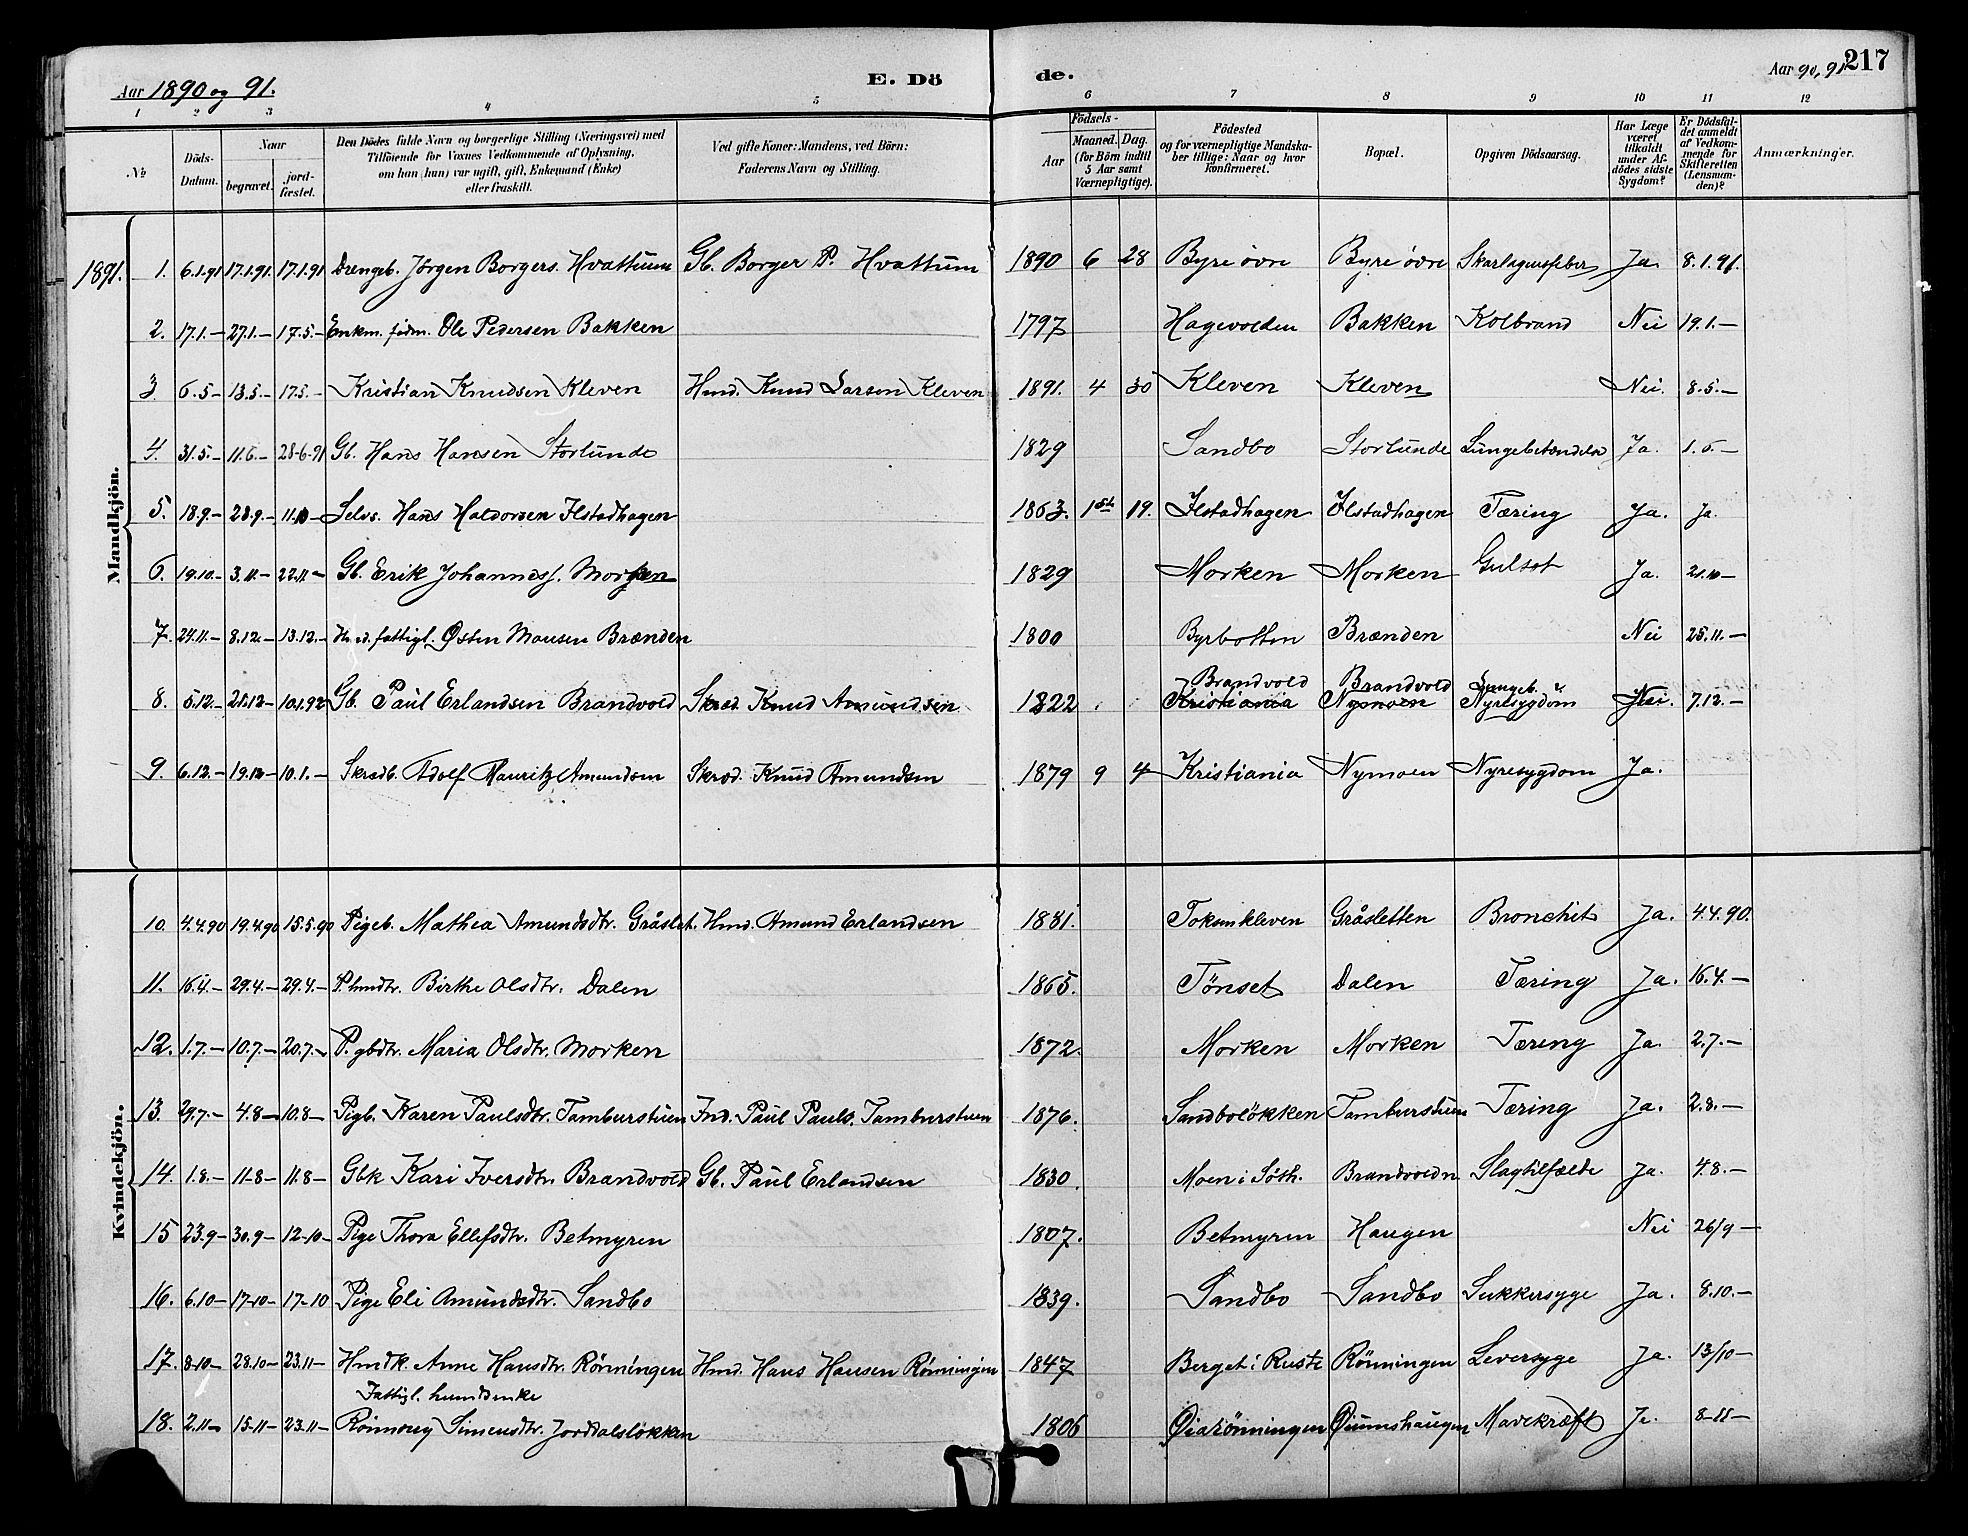 Aar 1890 og 91.
E. Dö
de.
Aar 90, 91
217
1 2 3 4 5 6 7 8 9 10 11 12
№
Döds-Datum.
Naar
begravet.
jord-fæstet.
Den Dödes fulde Navn og borgerlige Stilling (Næringsvei) med
Tilföiende for Voxnes Vedkommende af Oplysning,
om han (hun) var ugift, gift, Enkemand (Enke)
eller fraskilt.
Ved gifte Koner: Mandens, ved Börn:
Faderens Navn og Stilling.
Födsels-
Aar
Maaned. Dag.
(for Börn indtil
5 Aar samt
Værnepligtige).
Födested
og for værnepligtige Mandska-
ber tillige: Naar og hvor
konfirmeret.
Bopæl.
Opgiven Dödsaarsag.
Har Læge
været
tilkaldt
under Af-
dödes sidste
Sygdom?
Er Dödsfal-
det anmeldt
af Vedkom-
mende for
Skifteretten
(Lensman-
den)?
Anmærkninger.
Mandkjön.
1891. 1. 6.1.91 17.1.91. 17.1.91 Drengeb. Jörgen Borgers. Hvattum Gb. Borger P. Hvattum 1890 6 28 Byre övre Byre övre Skarlagensfeber Ja 8.1.91.
2. 17.1.– 27.1.– 17.5.– Enkm. födm. Ole Pedersen Bakken 1797 Hagevolden Bakken Kolbrand Nei 19.1.–
3. 6.5– 13.5.– 17.5.– Kristian Knudsen Kleven Hmd. Knud Larsen Kleven 1891. 4 30 Kleven Kleven Nei. 8.5.–
4. 31.5.– 11.6.– 28.6.91 Gb. Hans Hansen Storlunde 1829 Sandbo Storlunde Lungebetændelse Ja. 1.6.–
5. 18.9.– 28.9.– 11.10– Selvs. Hans Haldorsen Ilstadhagen 1863. 1ste 19. Ilstadhagen Ilstadhagen Tæring Ja. Ja.
6. 19.10.– 3.11.– 22.11.– Gb. Erik Johanness. Morken 1829 Morken Morken Gulsot Ja. 21.10–
7. 24.11.– 8.12– 13.12.– Hmd. fattigl. Östen Monsen Brænden 1800 Byrbotten Brænden Nei 25.11.–
8. 5.12.– 21.12– 10.1.92 Gb. Paul Erlandsen Brandvold Skræd. Knud Amundsen 1822 Brandvold Kristiania Brandvold Nymoen Lungeb. Nyresygdom Nei. 7.12.–
9. 6.12.– 19.12– 10.1.– Skrædb. Adolf Mauritz Amundsen Skræd. Knud Amundsen 1879 9 4 Kristiania Nymoen Nyresygdom Ja.
Kvindekjön.
10. 4.4.90 19.4.90 15.5.90 Pigeb. Mathea Amundsdtr. Gråslet. Hmd. Amund Erlandsen 1881. Tokumkleven Gråsletten Bronchit Ja. 4.4.90.
11. 16.4.– 29.4.– 29.4.– P. hmdtr. Birthe Olsdtr. Dalen 1865. Tönset Dalen Tæring Ja. 16.4.–
12. 1.7.– 10.7.– 20.7.– P. gbdtr. Maria Olsdtr. Morken 1872. Morken Morken Tæring Ja. 2.7.–
13. 29.7.– 4.8– 10.8– Pigb. Karen Paulsdtr. Tamburstuen Ind. Paul Pauls. Tamburstuen 1876. Sandbolökken Tamburstuen Tæring Ja. 2.8.–
14. 1.8.– 11.8– 11.8– Gbk Kari Iversdtr. Brandvold Gb. Paul Erlandsen 1830. Moen i Söth. Brandvoldn Slagtilfælde Ja. 4.8.–
15 23.9– 30.9– 12-10– Pige Thora Ellefsdtr. Betmyren 1807. Betmyren Haugen Nei 26/9–
16. 6.10– 17-10– 17-10 Pige Eli Amundsdtr. Sandbo 1839. Sandbo Sandbo Sukkersyge Ja. 8.10.–
17. 8-10– 28.10– 23.11– Hmdk. Anne Hansdtr. Rönningen Hmd. Hans Hansen Rönningen 1847 Berget i Ruste Rönningen Leversyge Ja. 13/10–
Fattigl. husmdsenke
18. 2.11– 15-11– 23.11– Rönnoug Simensdtr. Jorddalslökken 1806 Öiarönningen Öiumshaugen Mavekræft Ja. 8-11–